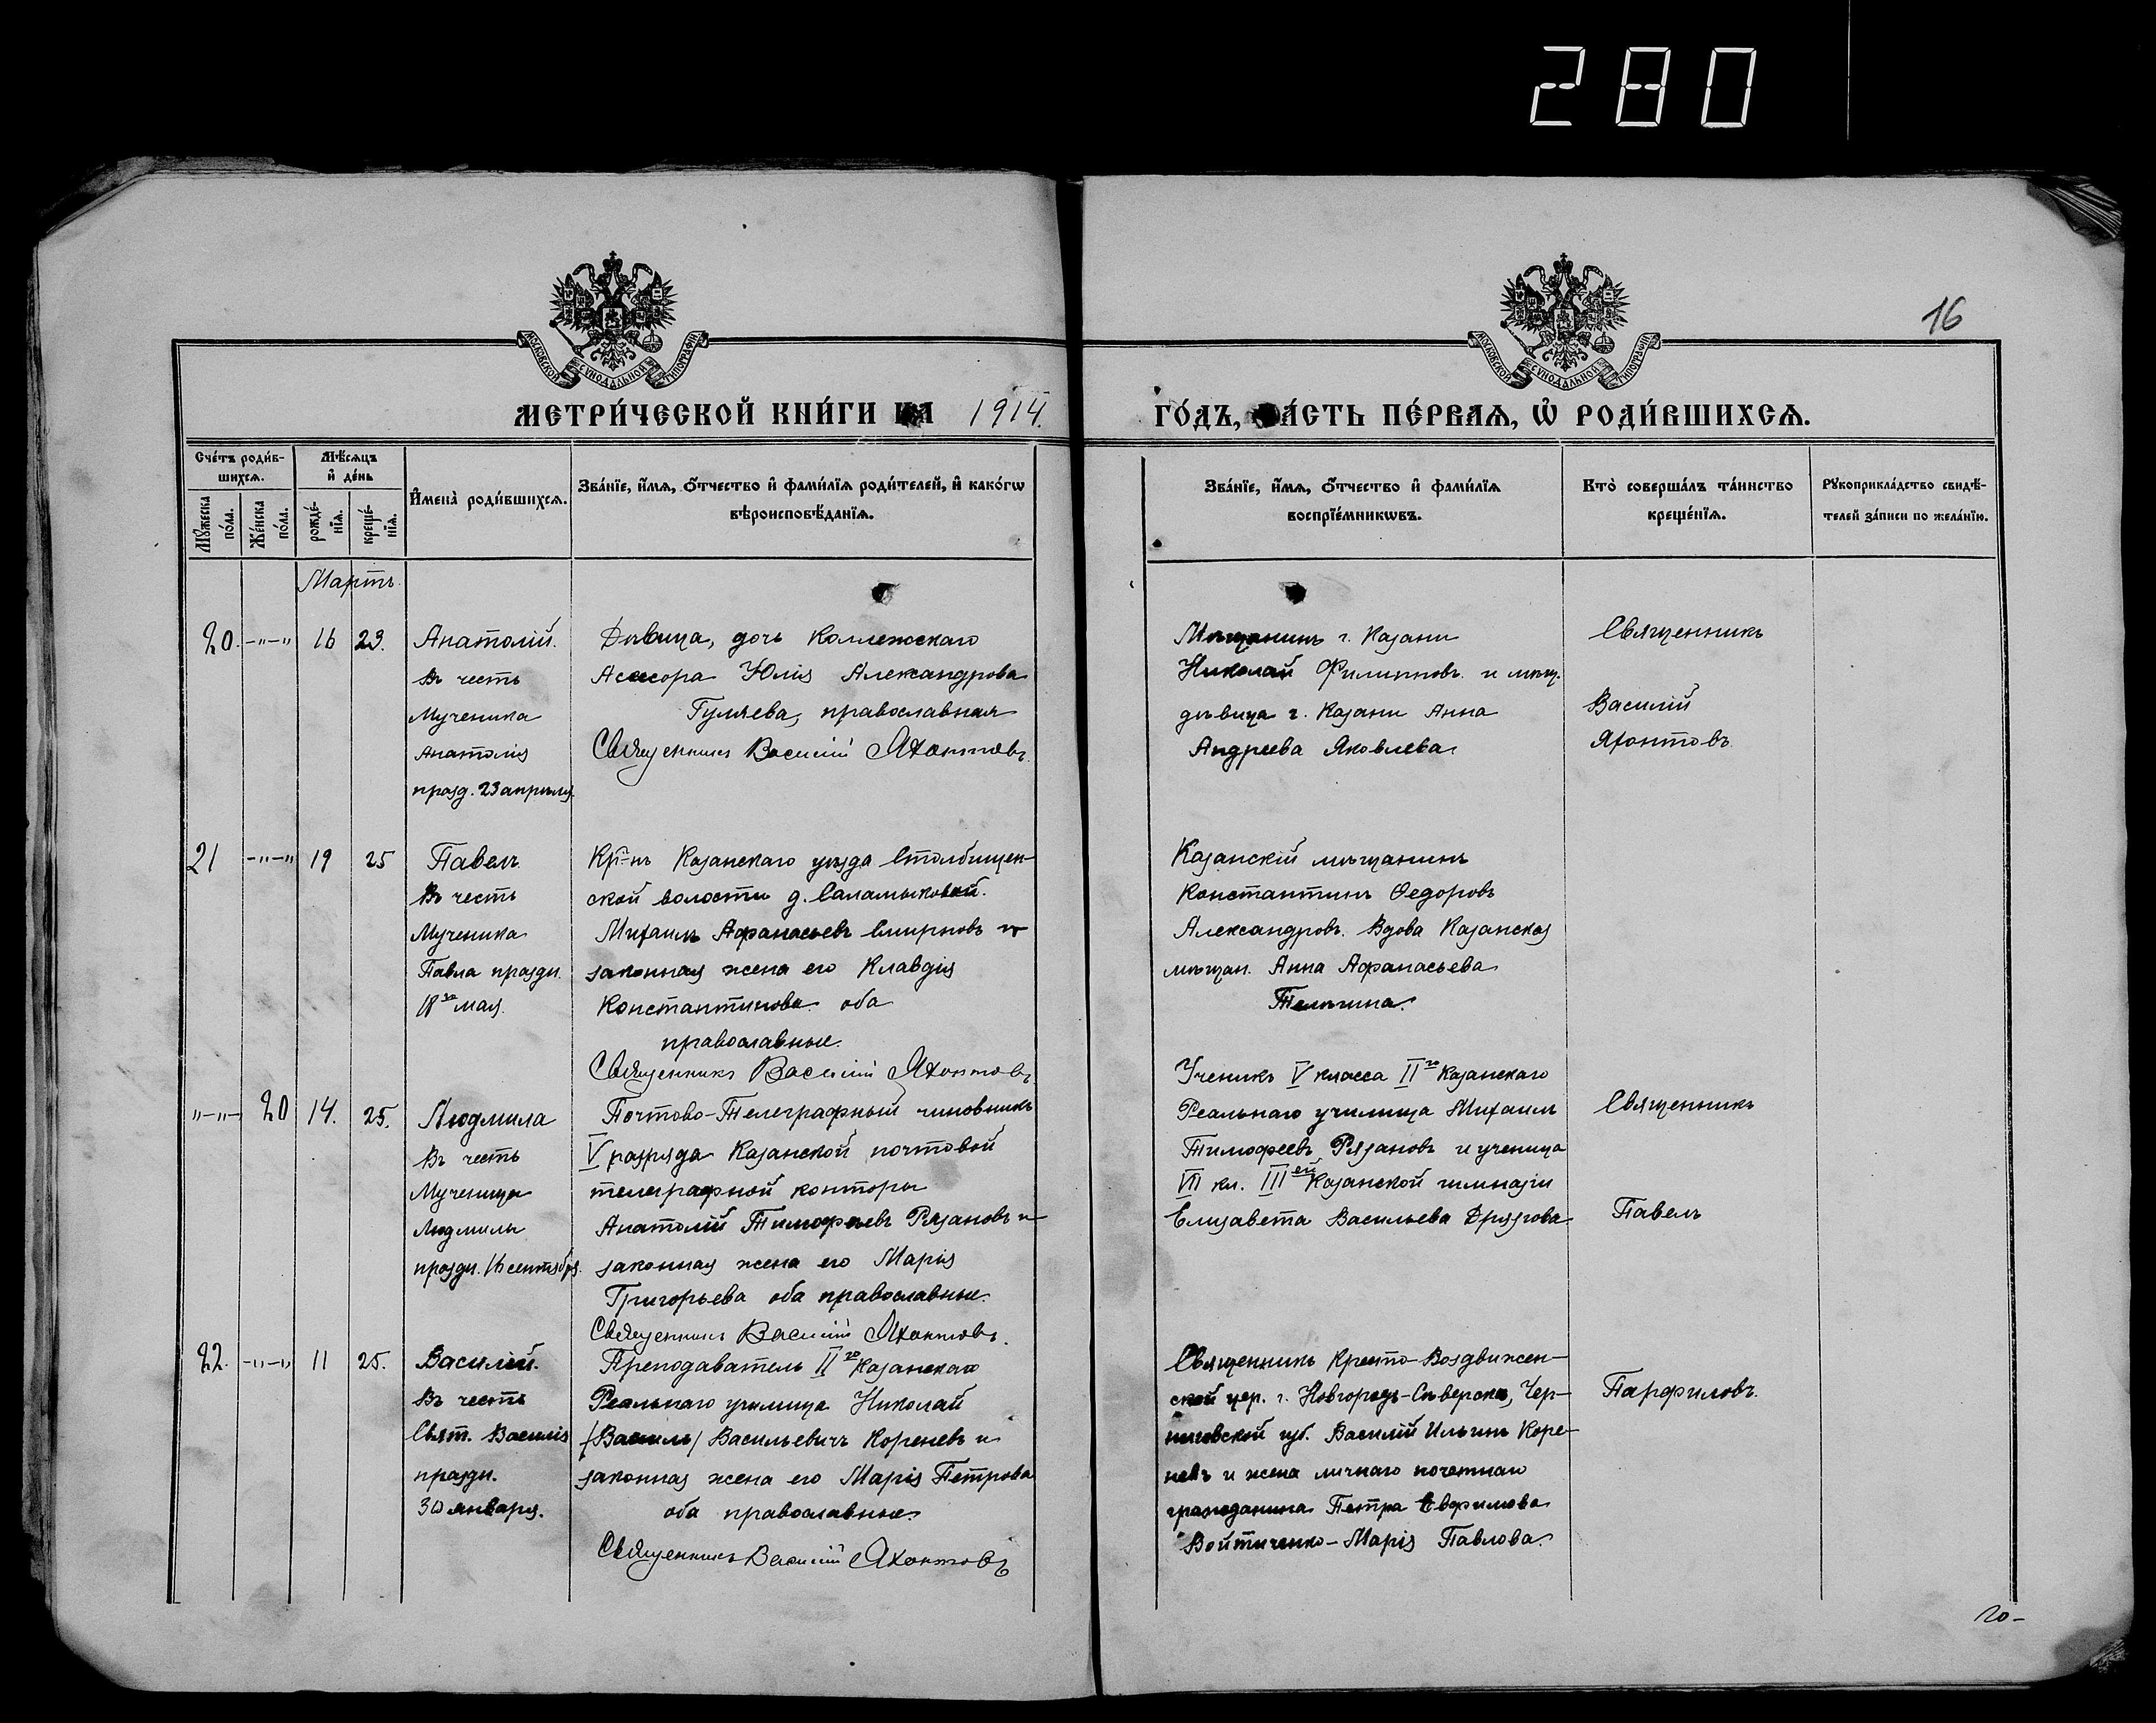 280
16
МОСКОВСКОЙ СѴНОДАЛЬНОЙ ТИПОГРАФІИ
МОСКОВСКОЙ СѴНОДАЛЬНОЙ ТИПОГРАФІИ
МЕТРИ́ЧЕСКОЙ КНИ́ГИ НА 1914.
ГО́ДЪ, ЧА́СТЬ ПЕ́РВАѦ, Ѡ҆ РОДИ́ВШИХСѦ.
Сче́тъ роди́в-
шихсѧ.
Мꙋ́жеска по́ла.
Же́нска по́ла.
Мѣ́сяцъ
и҆ де́нь
рожде́-
нїѧ.
креще́-
нїѧ.
И҆мена̀ роди́вшихсѧ.
Зва́нїе, и҆́мѧ, ѻ҆́тчество и҆ фами́лїѧ роди́телей, и҆ како́гѡ
вѣроисповѣ́данїѧ.
Зва́нїе, и҆́мѧ, ѻ҆́тчество и҆ фами́лїѧ
воспрїе́мникѡвъ.
Кто̀ соверша́лъ та́инство
креще́нїѧ.
Рꙋкоприкла́дство свидѣ́-
телей за́писи по жела́нїю.
Мартъ.
20. -"-" 16 23. Анатолій.
Въ честь
Мученика
Анатолія
празд. 23 апрѣля.
Дѣвица, дочь Коллежскаго
Асессора Юлія Александрова
Гуляева, православная
Священникъ Василій Яхонтовъ.
Мѣщанинъ г. Казани
Николай Филипповъ и мѣщ.
дѣвица г. Казани Анна
Андреева Яковлева.
Священникъ
Василій
Яхонтовъ.
21 -"-" 19 25 Павелъ
Въ честь
Мученика
Павла праздн.
18го мая.
Кр-нъ Казанскаго уѣзда Столбищен-
ской волости д. Саламыковой.
Михаилъ Афанасьевъ Смирновъ и
законная жена его Клавдія
Константинова оба
православные.
Священникъ Василій Яхонтовъ.
Казанскій мѣщанинъ
Константинъ Ѳедоровъ
Александровъ. Вдова Казанская
мѣщан. Анна Афанасьева
"-"- 20 14. 25. Людмила
Въ честь
Мученицы
Людмилы
праздн. 16 сентября.
Почтово-Телеграфный чиновникъ
V разряда Казанской почтовой
телеграфной конторы
Анатолій Тимофеевъ Рязановъ и
законная жена его Марія
Григорьева оба православные.
Священникъ Василій Яхонтовъ.
Ученикъ V класса IIго Казанскаго
Реальнаго училища Михаилъ
Тимофеевъ Рязановъ и ученица
VII кл. IIIей Казанской гимназіи
Елизавета Васильева Дрязгова
Священникъ
Павелъ
Парфиловъ.
22. -"-" 11 25. Василій.
Въ честь
Свят. Василія
праздн.
30 января.
Преподаватель IIго Казанскаго
Реальнаго училища Николай
Васильевичъ Кореневъ и
законная жена его Марія Петрова
оба православные.
Священникъ Василій Яхонтовъ
Священникъ Кресто-Воздвижен-
ской цер. г. Новгородъ-Сѣверска, Чер-
ниговской губ. Василій Ильинъ Коре-
невъ и жена личнаго почетнаго
гражданина Петра Евфимова
Войтиченко-Марія Павлова.